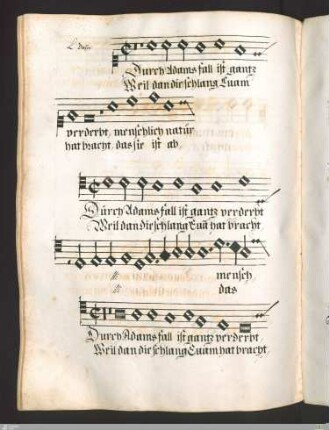 Durch Adams fall ist gantz
Weil dan die schlang Euam
verderbt, menschlich natur
hat bracht, das sie ist ab
Durch Adams fall ist gantz verderbt
Weil dan die schlang Euã hat bracht
mensch
das
Durch Adams fall ist gantz verderbt
Weil dan die schlang Euam hat bracht